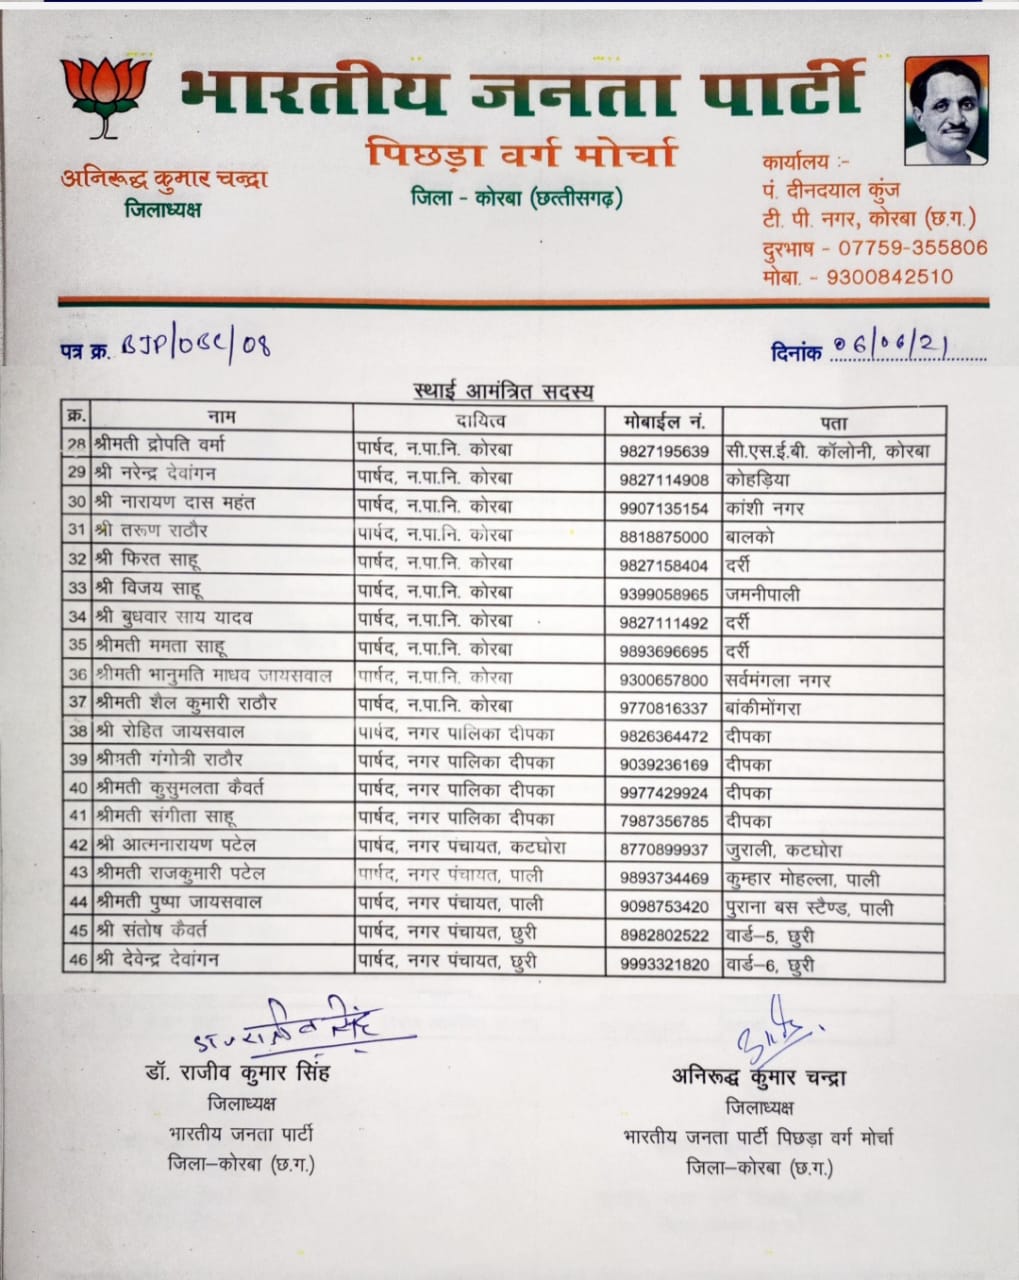 भारतीय जनता पार्टी
पिछड़ा वर्ग मोर्चा
जिला - कोरबा (छत्तीसगढ़)
अनिरूद्ध कुमार चन्द्रा
जिलाध्यक्ष
कार्यालय :-
पं. दीनदयाल कुंज
टी. पी. नगर, कोरबा (छ.ग.)
दुरभाष - 07759-355806
मोबा. - 9300842510
पत्र क्र. BJP/OBC/08
दिनांक 06/06/21
स्थाई आमंत्रित सदस्य
क्र. नाम दायित्व मोबाईल नं. पता
28 श्रीमती द्रोपति वर्मा पार्षद, न.पा.नि. कोरबा 9827195639 सी.एस.ई.बी. कॉलोनी, कोरबा
29 श्री नरेन्द्र देवांगन पार्षद, न.पा.नि. कोरबा 9827114908 कोहड़िया
30 श्री नारायण दास महंत पार्षद, न.पा.नि. कोरबा 9907135154 कांशी नगर
31 श्री तरूण राठौर पार्षद, न.पा.नि. कोरबा 8818875000 बालको
32 श्री फिरत साहू पार्षद, न.पा.नि. कोरबा 9827158404 दर्री
33 श्री विजय साहू पार्षद, न.पा.नि. कोरबा 9399058965 जमनीपाली
34 श्री बुधवार साय यादव पार्षद, न.पा.नि. कोरबा 9827111492 दर्री
35 श्रीमती ममता साहू पार्षद, न.पा.नि. कोरबा 9893696695 दर्री
36 श्रीमती भानुमति माधव जायसवाल पार्षद, न.पा.नि. कोरबा 9300657800 सर्वमंगला नगर
37 श्रीमती शैल कुमारी राठौर पार्षद, न.पा.नि. कोरबा 9770816337 बांकीमोंगरा
38 श्री रोहित जायसवाल पार्षद, नगर पालिका दीपका 9826364472 दीपका
39 श्रीमती गंगोत्री राठौर पार्षद, नगर पालिका दीपका 9039236169 दीपका
40 श्रीमती कुसुमलता कैवर्त पार्षद, नगर पालिका दीपका 9977429924 दीपका
41 श्रीमती संगीता साहू पार्षद, नगर पालिका दीपका 7987356785 दीपका
42 श्री आत्मनारायण पटेल पार्षद, नगर पंचायत, कटघोरा 8770899937 जुराली, कटघोरा
43 श्रीमती राजकुमारी पटेल पार्षद, नगर पंचायत, पाली 9893734469 कुम्हार मोहल्ला, पाली
44 श्रीमती पुष्पा जायसवाल पार्षद, नगर पंचायत, पाली 9098753420 पुराना बस स्टैण्ड, पाली
45 श्री संतोष कैवर्त पार्षद, नगर पंचायत, छुरी 8982802522 वार्ड–5, छुरी
46 श्री देवेन्द्र देवांगन पार्षद, नगर पंचायत, छुरी 9993321820 वार्ड–6, छुरी
डॉ. राजीव कुमार सिंह
जिलाध्यक्ष
भारतीय जनता पार्टी
जिला–कोरबा (छ.ग.)
अनिरूद्ध कुमार चन्द्रा
जिलाध्यक्ष
भारतीय जनता पार्टी पिछड़ा वर्ग मोर्चा
जिला–कोरबा (छ.ग.)